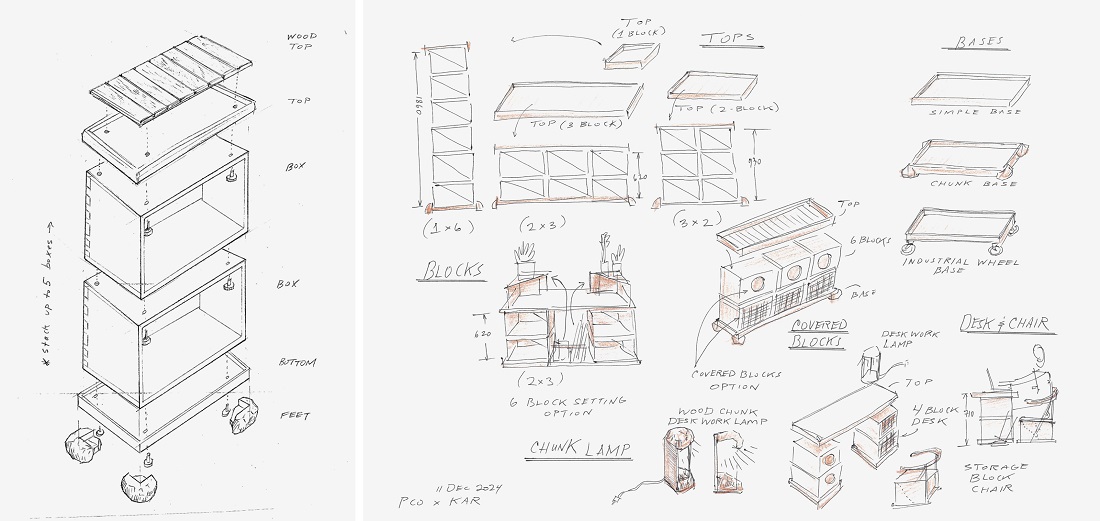 WOOD
TOP
TOP
BOX
* stack up to 5 boxes →
BOX
BOTTOM
FEET
TOP
(1 BLOCK)
TOPS
BASES
1860
TOP (3 BLOCK)
TOP (2-BLOCK)
SIMPLE BASE
620
930
CHUNK BASE
(1x6)
(2x3)
(3x2)
TOP
6 BLOCKS
BASE
INDUSTRIAL WHEEL
BASE
BLOCKS
620
(2x3)
6 BLOCK SETTING
OPTION
COVERED
BLOCKS
COVERED BLOCKS
OPTION
DESK & CHAIR
DESK WORK
LAMP
TOP
4 BLOCK
DESK
710
WOOD CHUNK
DESK WORK LAMP
CHUNK LAMP
STORAGE
BLOCK
CHAIR
11 DEC 2024
PCO x KAR